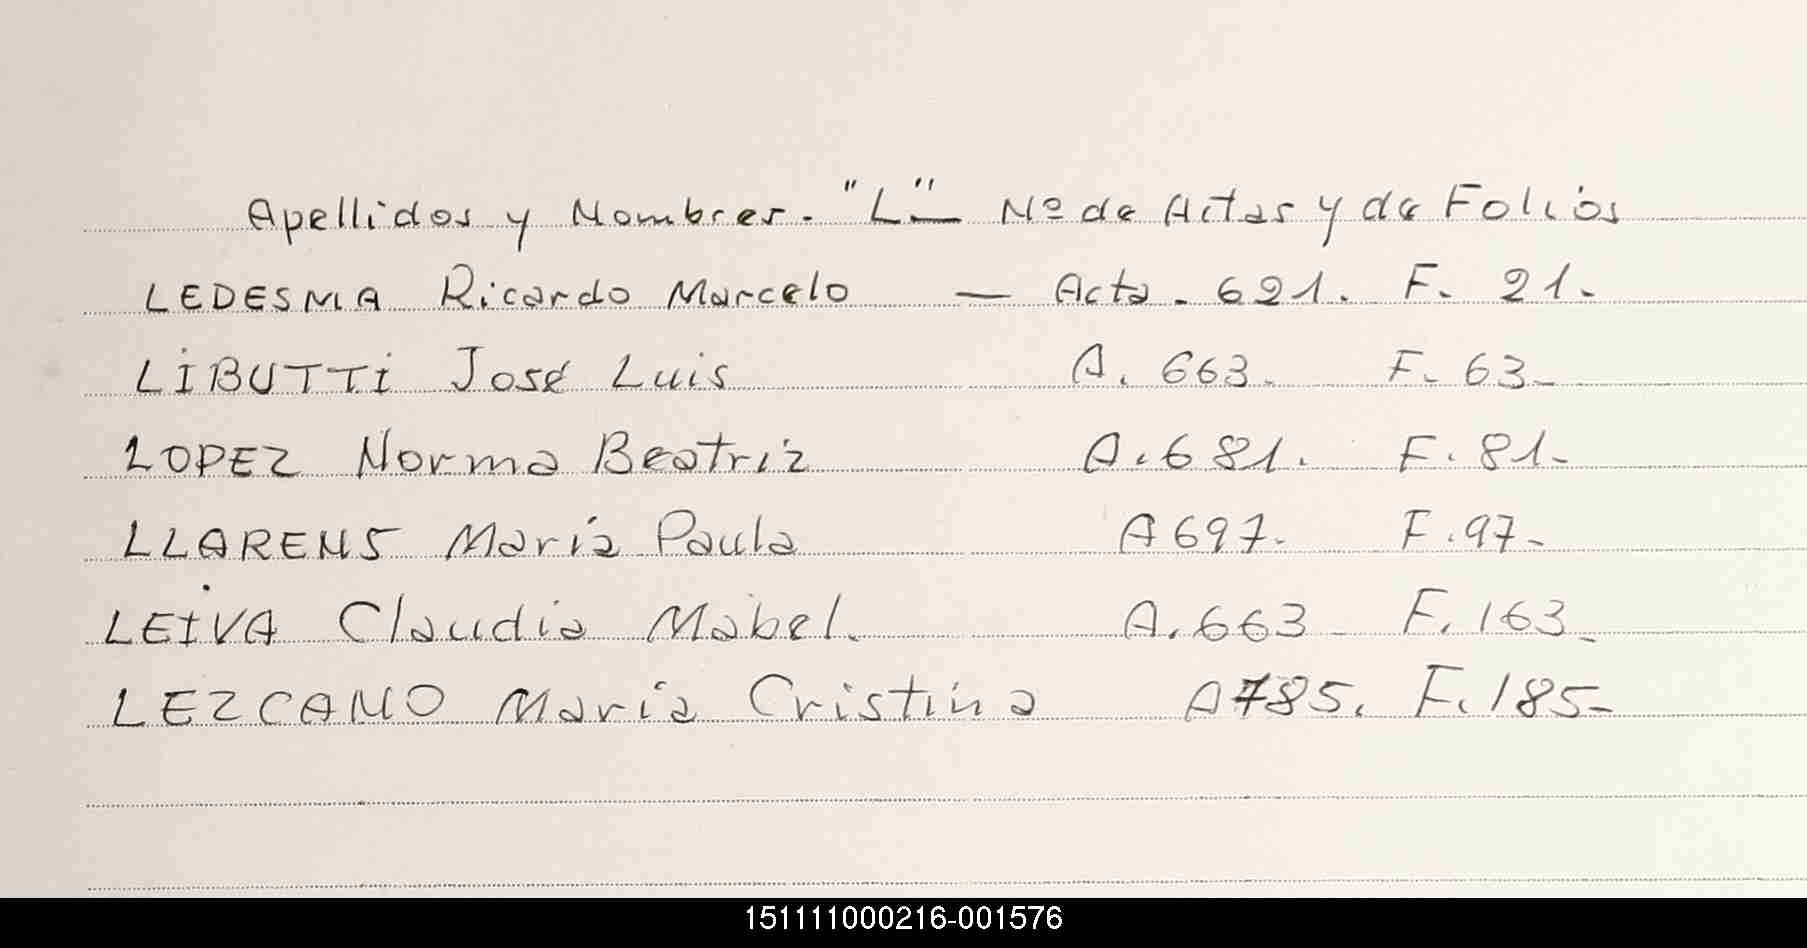 Apellidos y Nombres. "L" — Nº de Actas y de Folios
LEDESMA Ricardo Marcelo — Acta. 621. F. 21.
LIBUTTI José Luis A. 663. F. 63_
LOPEZ Norma Beatriz A. 681. F. 81_
LLARENS María Paula A 697. F. 97_
LEIVA Claudia Mabel. A. 663 F. 163_
LEZCANO María Cristina A 785. F. 185_
151111000216-001576